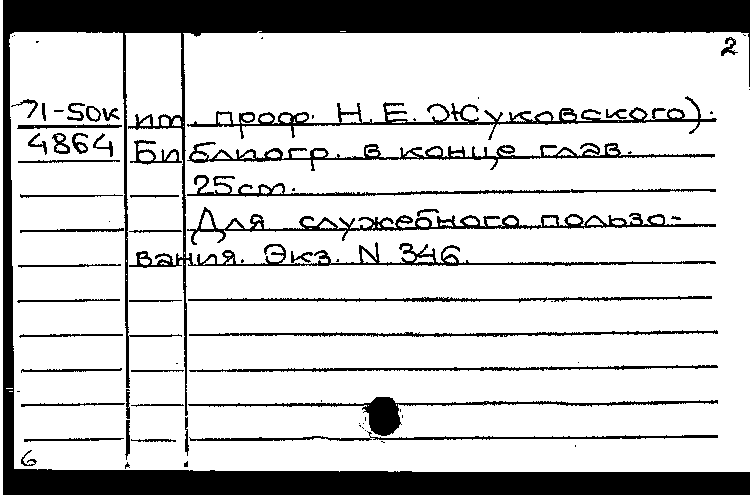 2
71-50к им. проф. Н.Е. Жуковского).
4864 Библиогр. в конце глав.
25см.
Для служебного пользо-
вания. Экз. N 346.
6